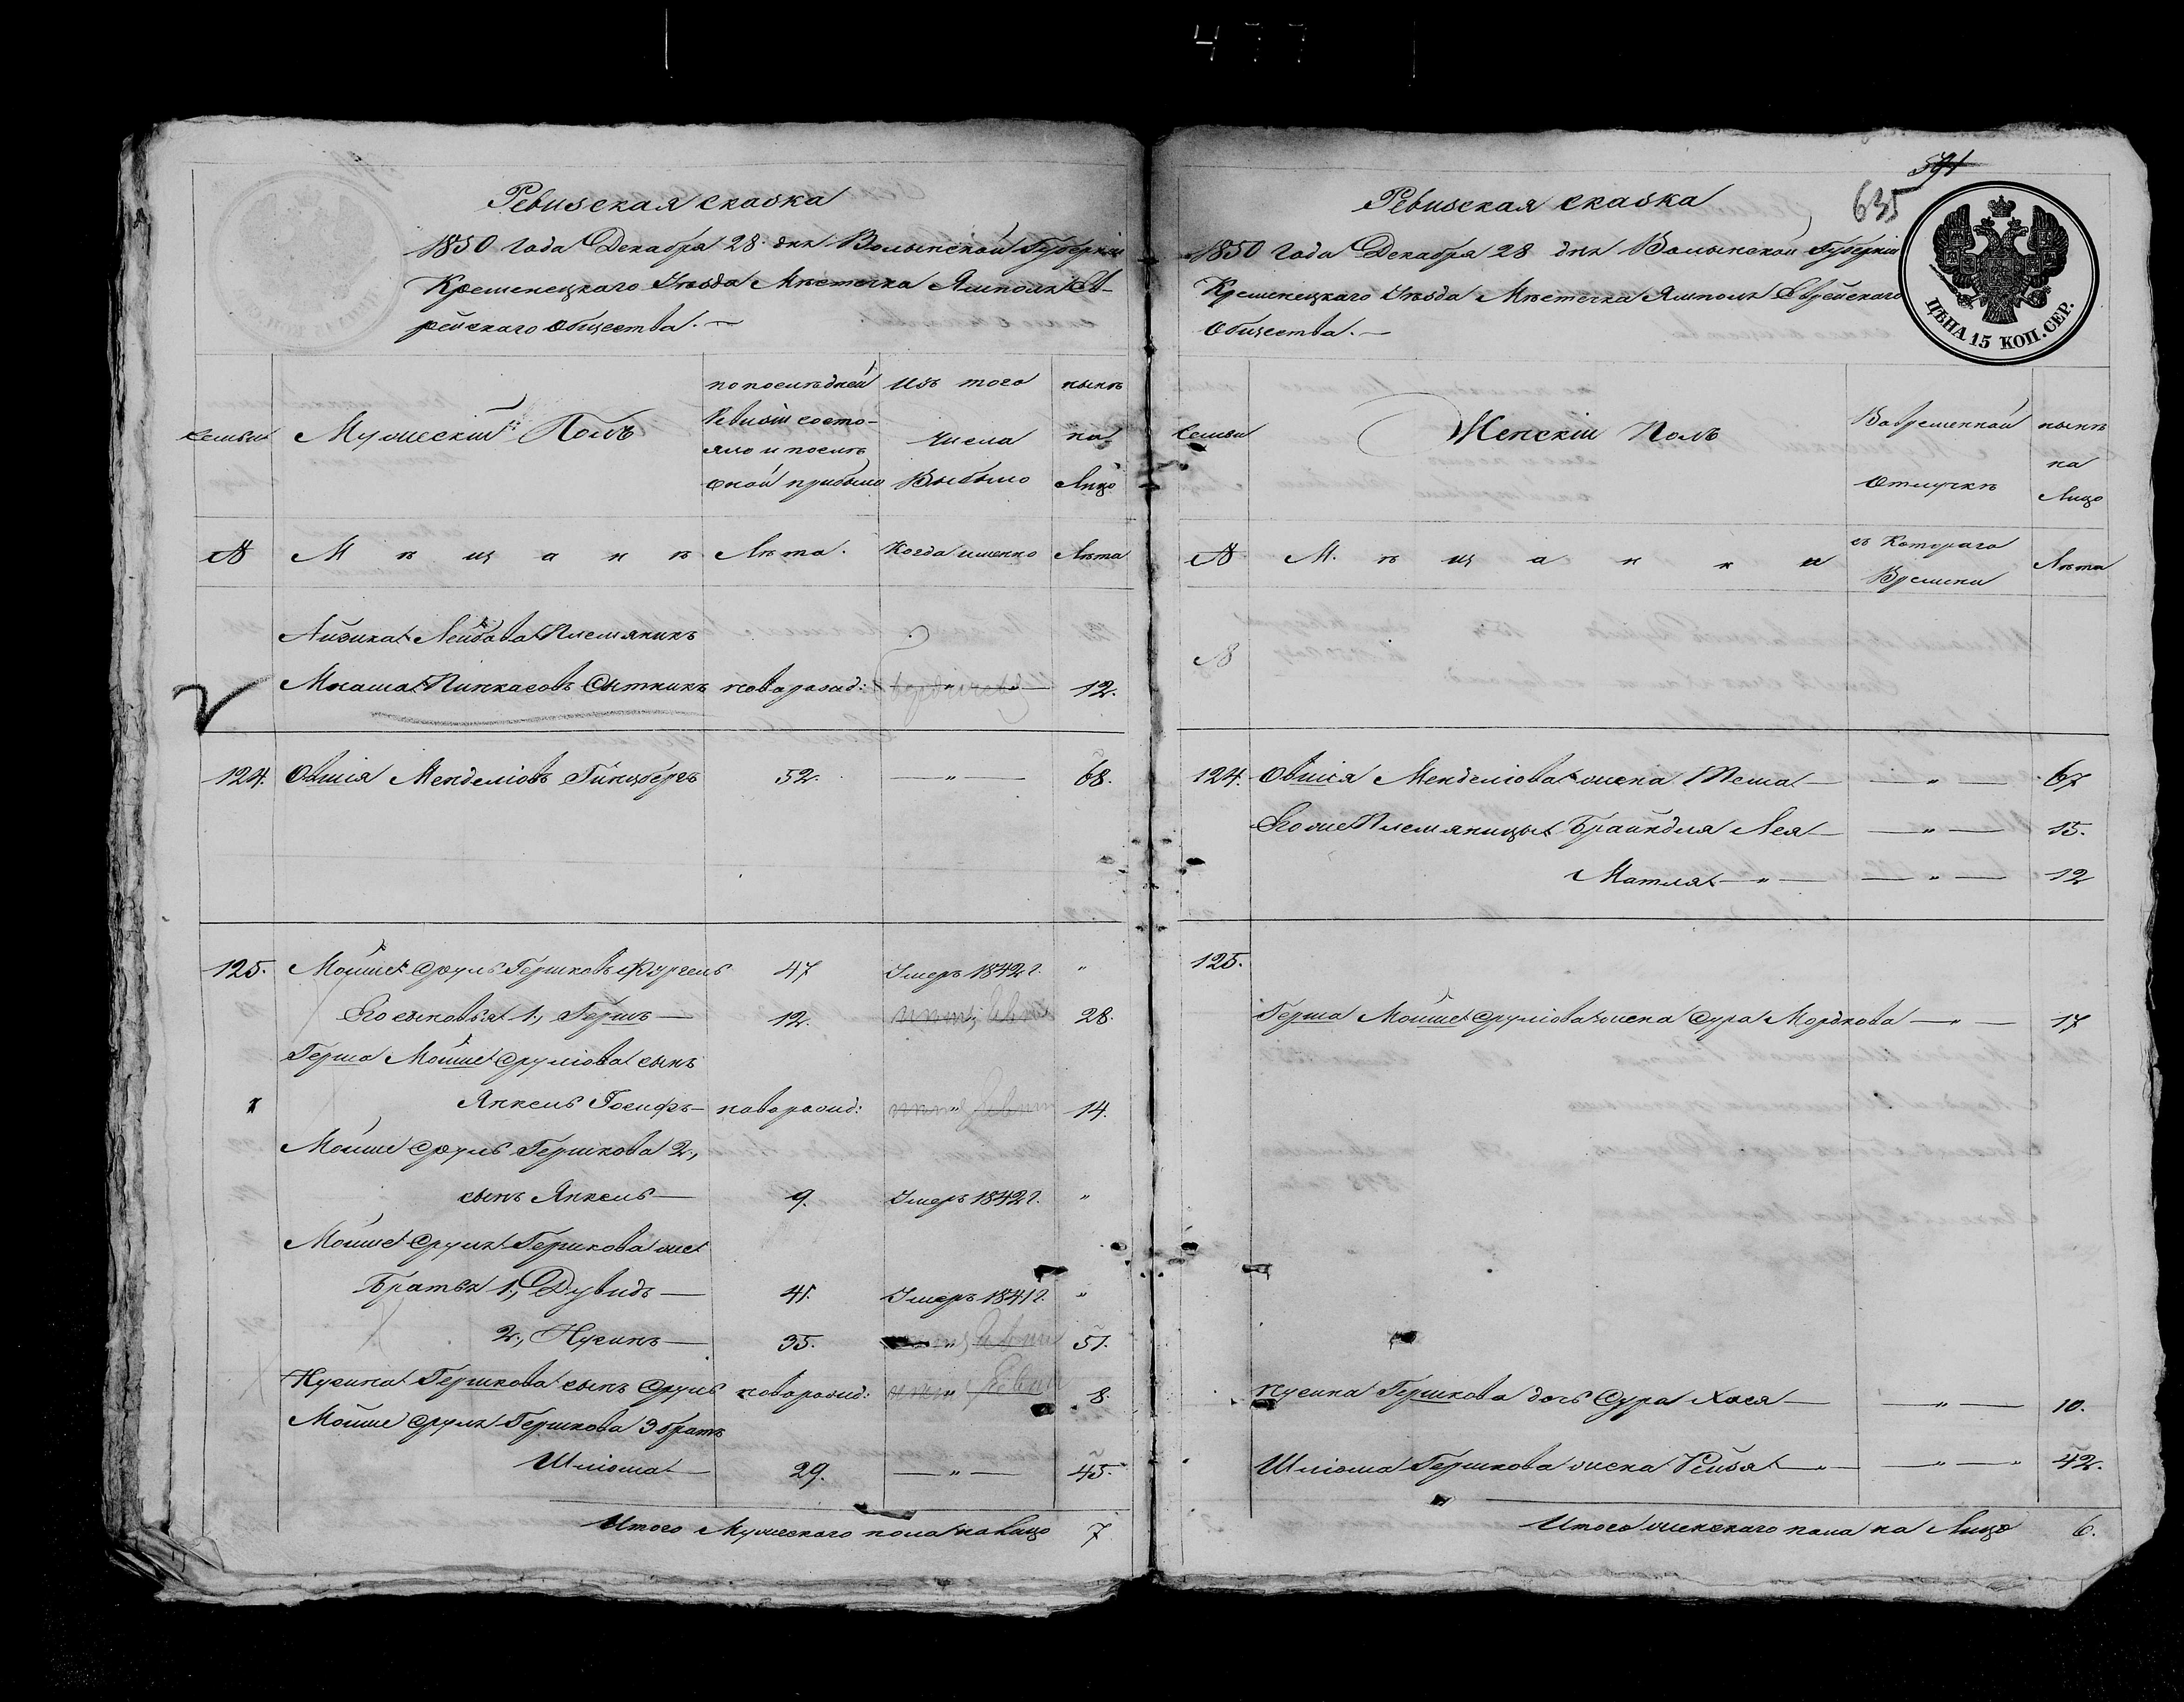 477
Ревизская сказка
1850 года Декабря 28 дня Волынской Губерніи
Кременецкаго Уѣзда Мѣстечка Ямполя Ев-
рейскаго Общества.
семьи
Мужескій Полъ
по послѣдней
Ревизіи состо-
яло и послѣ
оной прибыло
Изъ того
числа
Выбыло
нынѣ
на
Лицо
№
Мѣщане
Лѣта.
Когда именно
Лѣта
Айзика Лейбова Племяникъ
Мнаша Пинкасовъ Сыткикъ новорожд: — " — 12.
124. Овшія Менделіовъ Гинцбергъ 52. — " — 68.
125. Мойше Сруль Гершковъ Фургель 47 Умеръ 1842 г. "
Его сыновья 1., Гершъ — 12. 28.
Герша Мойше Сруліова сынъ
Янкель Іосифъ — новорожд: " 14.
Мойше Сруль Гершкова 2.,
сынъ Янкель — 9. Умеръ 1842 г. "
Мойше Сруля Гершкова же
Братья 1., Дувидъ — 41. Умеръ 1841 г. "
2., Нусинъ — 35. " 51.
Нусина Гершкова сынъ Сруль новорожд: " 8.
Мойше Сруля Гершкова 3 братъ
Шліома — 29. — " — 45.
Итого Мужескаго пола на Лицо 7
591
635
ЦѢНА 15 КОП. СЕР.
Ревизская сказка
1850 года Декабря 28 дня Волынской Губерніи
Кременецкаго Уѣзда Мѣстечка Ямполя Еврейскаго
Общества.
Семьи
Женскій Полъ
Во временной
отлучкѣ
нынѣ
на
Лицо
№
Мѣщанки
съ Котораго
Времени
Лѣта
№
124. Овшія Менделіова жена Теша — — " — 67
Его же Племяницы Брайндля Лея — — " — 15.
Матля — " — — " — 12
125.
Герша Мойше Сруліова жена Сура Мордкова — " — 17
Нусина Гершкова дочь Сура Хася — — " — 10.
Шліома Гершкова жена Рейзя — " — — " — " 42.
Итого женскаго пола на Лицо 6.